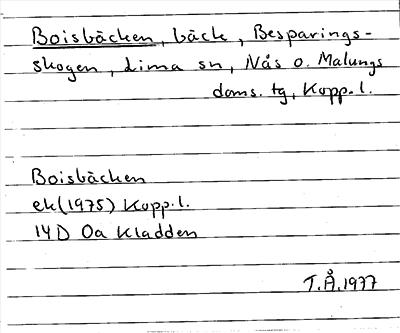 Boisbäcken, bäck, Besparings-
skogen, Lima sn, Nås o. Malungs
doms. tg, Kopp. l.
Boisbäcken
ek (1975) Kopp. l.
14D Oa Kladden
T.Å. 1977